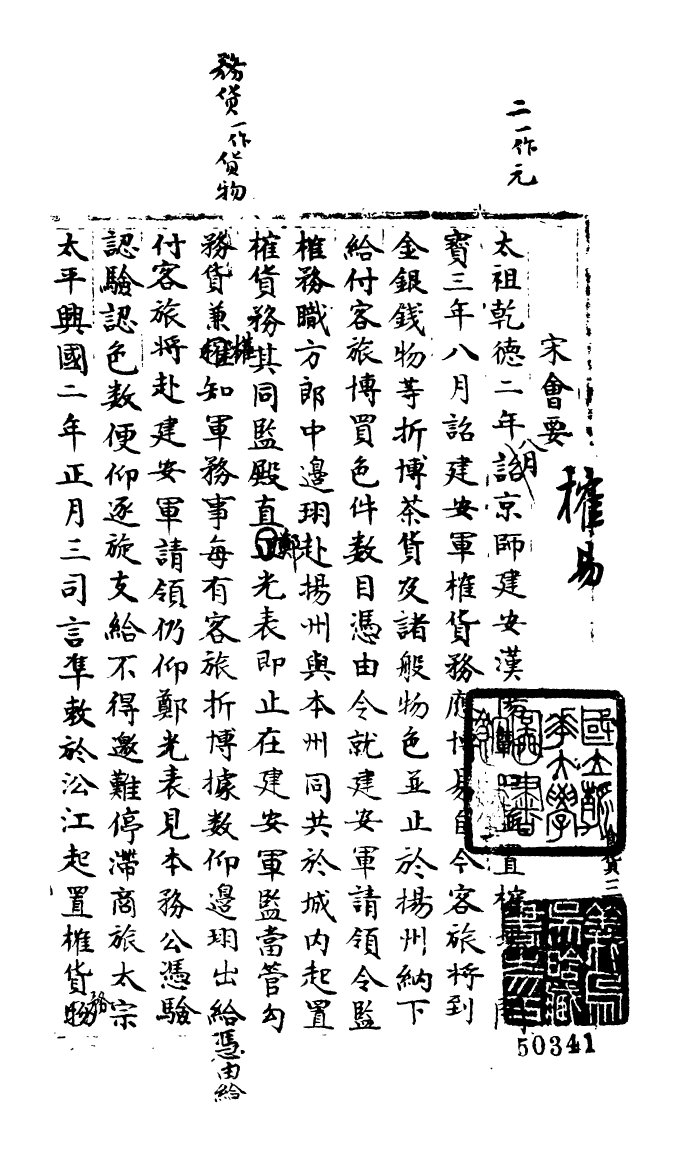 宋會要
榷易
二一作元
太祖乾德二年八月詔京師建安漢陽置榷
寶三年八月詔建安軍榷貨務應博易自今客旅將到
金銀錢物等折博茶貨及諸般物色並止於揚州納下
給付客旅博買色件數目憑由令就建安軍請領令監
榷務職方郎中邊珝赴揚州與本州同共於城內起置
榷貨務其同監殿直鄭光表即止在建安軍監當管勾
務貨一作貨物
務貨兼榷知軍務事每有客旅折博據數仰邊珝出給憑由給
付客旅將赴建安軍請領仍仰鄭光表見本務公憑驗
認驗認色數便仰逐旋支給不得邀難停滯商旅太宗
太平興國二年正月三司言準敕於沿江起置榷貨務
食貨三
50341